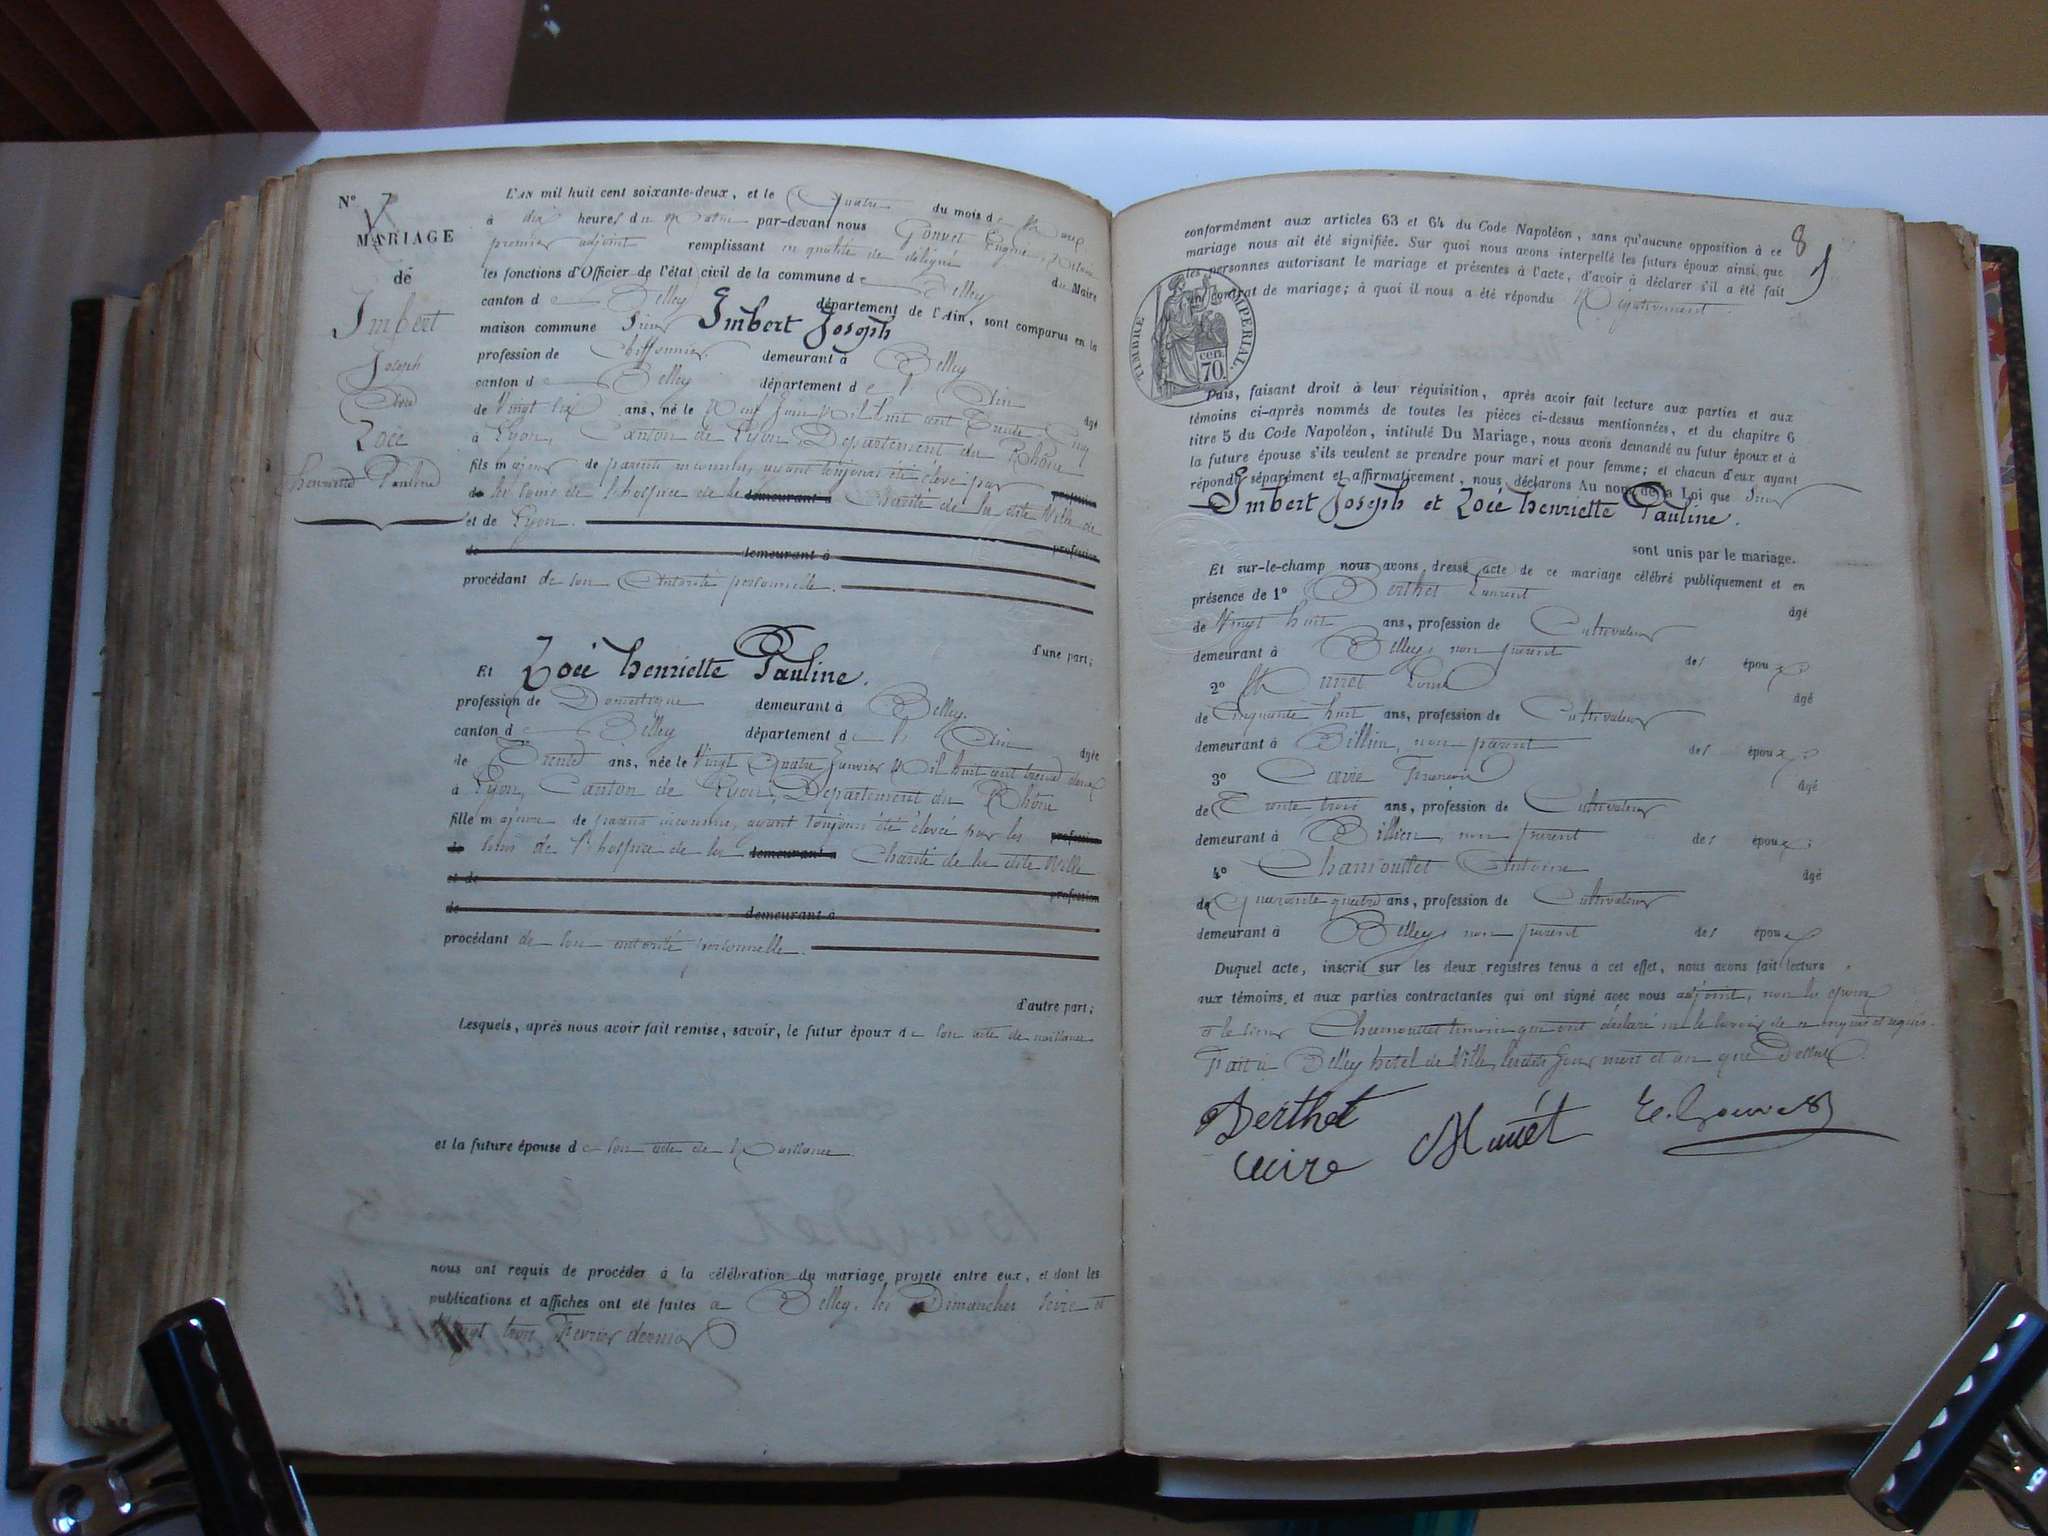 N° 7
MARIAGE
de
Imbert
Joseph
Et
Zoée
henriette Pauline
L'AN mil huit cent soixante-deux, et le Quatre du mois de Mars
à dix heures du matin par-devant nous Gouvet Eugène
premier adjoint remplissant en qualité de délégué du Maire
les fonctions d'Officier de l'état civil de la commune de Belley
canton de Belley département de l'Ain, sont comparus en la
maison commune Sieur Imbert Joseph
profession de Chiffonnier demeurant à Belley
canton de Belley département de l'Ain âgé
de Vingt six ans, né le Neuf Juin Mil huit cent Trente Cinq
à Lyon, Canton de Lyon, Département du Rhône
fils majeur de parents inconnus, ayant toujours été élevé par profession
de les soins de l'hospice de la demeurant à Charité de la dite Ville de
et de Lyon.
de demeurant à profession
procédant de son Autorité personnelle.
d'une part;
Et Zoée henriette Pauline.
profession de Domestique demeurant à Belley.
canton de Belley département de l'Ain âgée
de Trente ans, née le Vingt Quatre Janvier Mil huit cent trente deux
à Lyon, Canton de Lyon, Département du Rhône
fille majeure de parents inconnus, ayant toujours été élevée par les profession
de soins de l'hospice de la demeurant à Charité de la dite Ville
et de profession
de demeurant à
procédant de son autorité personnelle.
d'autre part;
Lesquels, après nous avoir fait remise, savoir, le futur époux de son acte de naissance
et la future épouse de son acte de Naissance
nous ont requis de procéder à la célébration du mariage projeté entre eux, et dont les
publications et affiches ont été faites à Belley, les Dimanches seize et
Vingt trois Fevrier dernier
8
conformément aux articles 63 et 64 du Code Napoléon, sans qu'aucune opposition à ce
mariage nous ait été signifiée. Sur quoi nous avons interpellé les futurs époux ainsi que
les personnes autorisant le mariage et présentes à l'acte, d'avoir à déclarer s'il a été fait
un contrat de mariage; à quoi il nous a été répondu Négativement.
TIMBRE IMPERIAL.
cen.
70.
Puis, faisant droit à leur réquisition, après avoir fait lecture aux parties et aux
témoins ci-après nommés de toutes les pièces ci-dessus mentionnées, et du chapitre 6
titre 5 du Code Napoléon, intitulé Du Mariage, nous avons demandé au futur époux et à
la future épouse s'ils veulent se prendre pour mari et pour femme; et chacun d'eux ayant
répondu séparément et affirmativement, nous déclarons Au nom de la Loi que Sieur
Imbert Joseph et Zoée henriette Pauline.
sont unis par le mariage.
Et sur-le-champ nous avons dressé acte de ce mariage célébré publiquement et en
présence de 1° Berthet Laurent âgé
de Vingt huit ans, profession de Cultivateur
demeurant à Belley, non parent des époux;
2° Munet Louis âgé
de Cinquante huit ans, profession de Cultivateur
demeurant à Billieu, non parent des époux;
3° François âgé
de Trente trois ans, profession de Cultivateur
demeurant à Billieu, non parent des époux;
4° Chamouttet Antoine âgé
de Quarante quatre ans, profession de Cultivateur
demeurant à Belley, non parent des époux
Duquel acte, inscrit sur les deux registres tenus à cet effet, nous avons fait lecture
aux témoins et aux parties contractantes qui ont signé avec nous adjoint, non les époux
et le sieur Chamouttet témoin qui ont déclaré ne le savoir de ce enquis et requis.
Fait à Belley hôtel de Ville, les dits Jour mois et an que Dessus.
Berthet Munét E. Gouvet